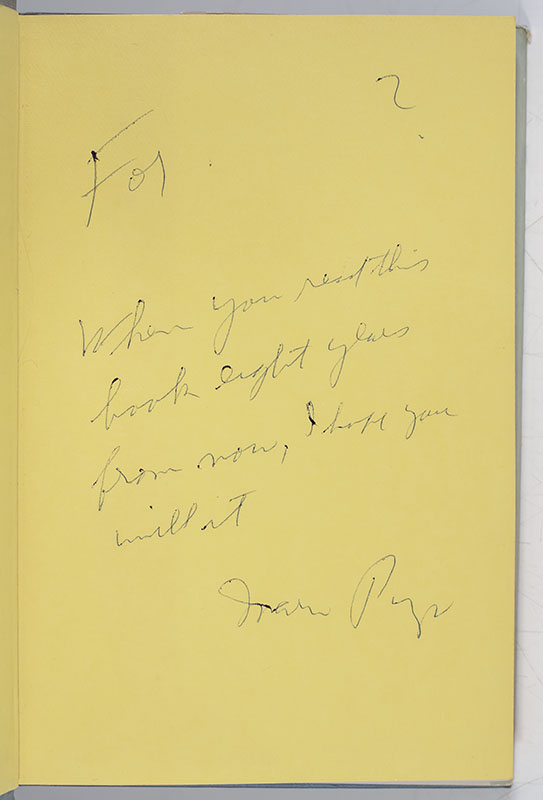 For ?
When you read this
book eight years
from now, I hope you
will it